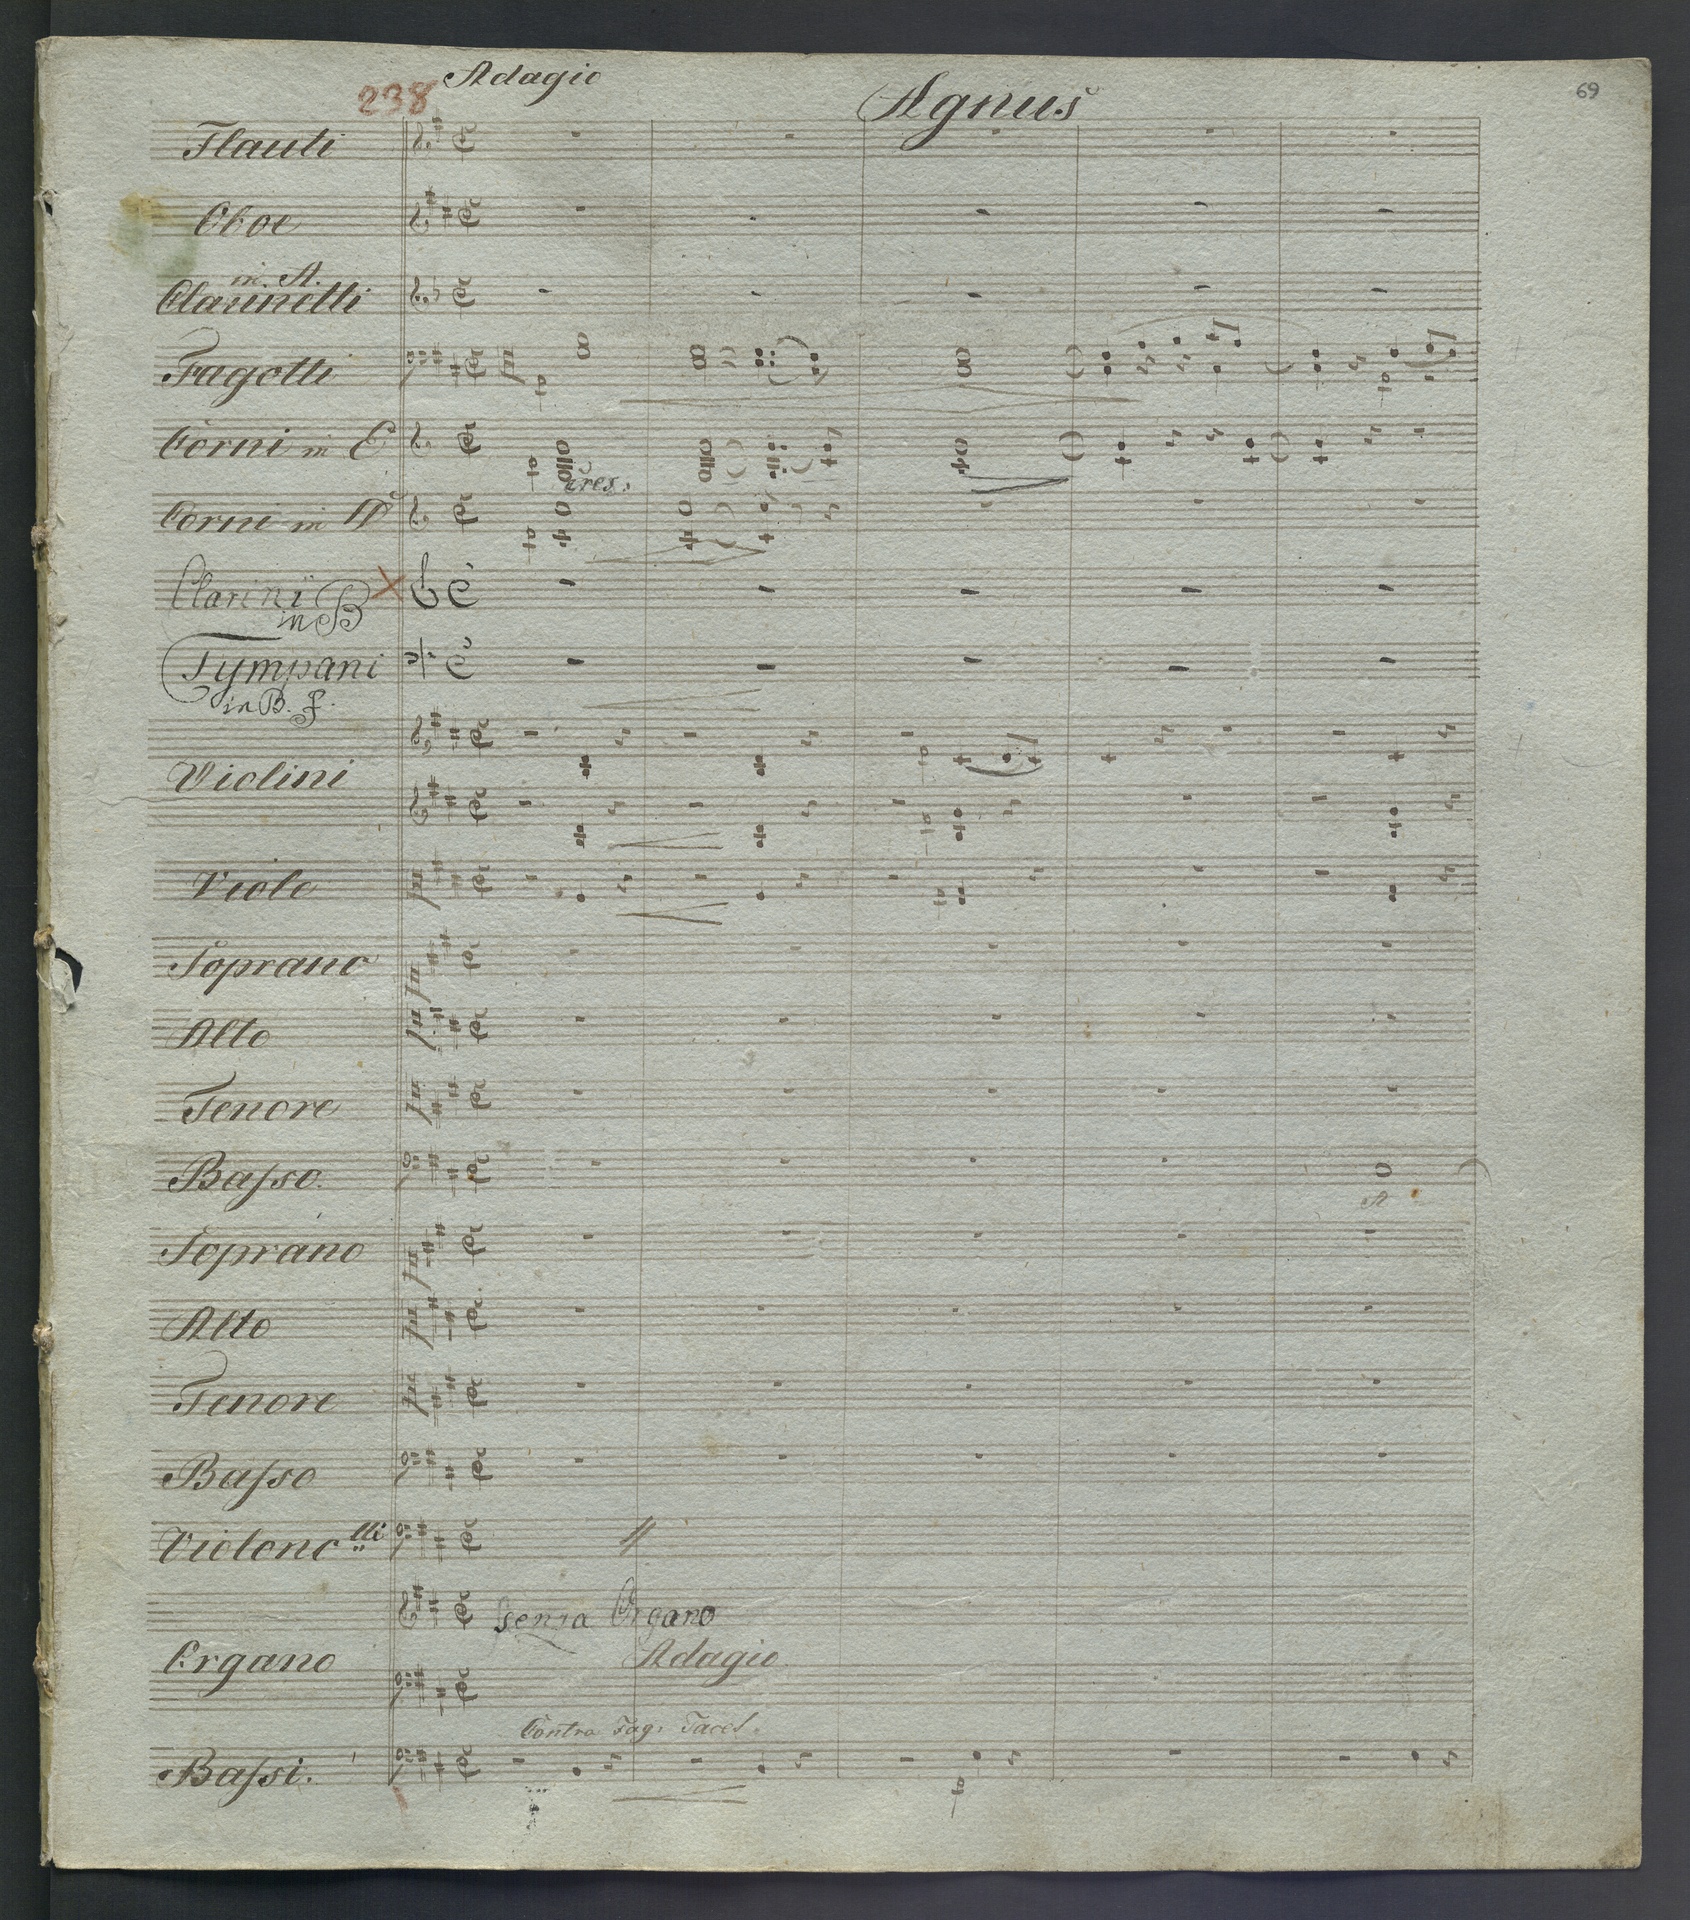 Adagio
238
Agnus
69
Flauti
Oboe
in A.
Clarinetti
Fagotti
Corni in E
cres:
Corni in D
Clarini
in B
Tympani
in B. f.
Violini
Viole
Soprano
Alto
Tenore
Baſso.
A
Soprano
Alto
Tenore
Baſso
Violoncelli
senza Organo
Organo
Adagio
Contra Fag: Tacet
Baſsi.